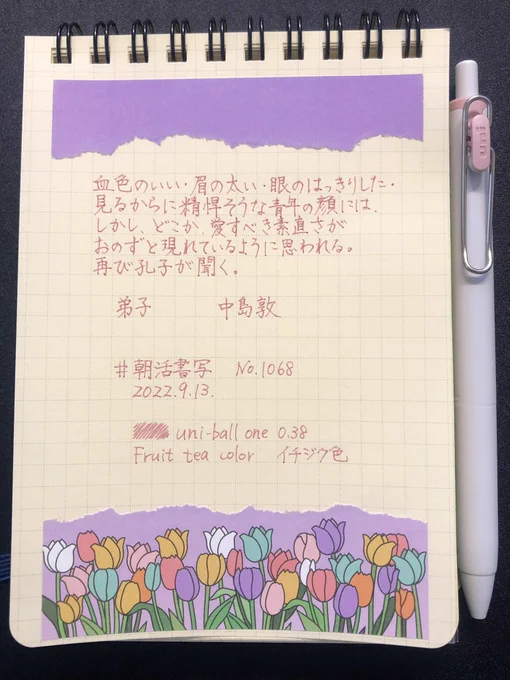 血色のいい・眉の太い・眼のはっきりした・
見るからに精悍そうな青年の顔には、
しかし、どこか、愛すべき素直さが
おのずと現れているように思われる。
再び孔子が聞く。
弟子 中島敦
#朝活書写 No.1068
2022.9.13.
uni-ball one 0.38
Fruit tea color イチジク色